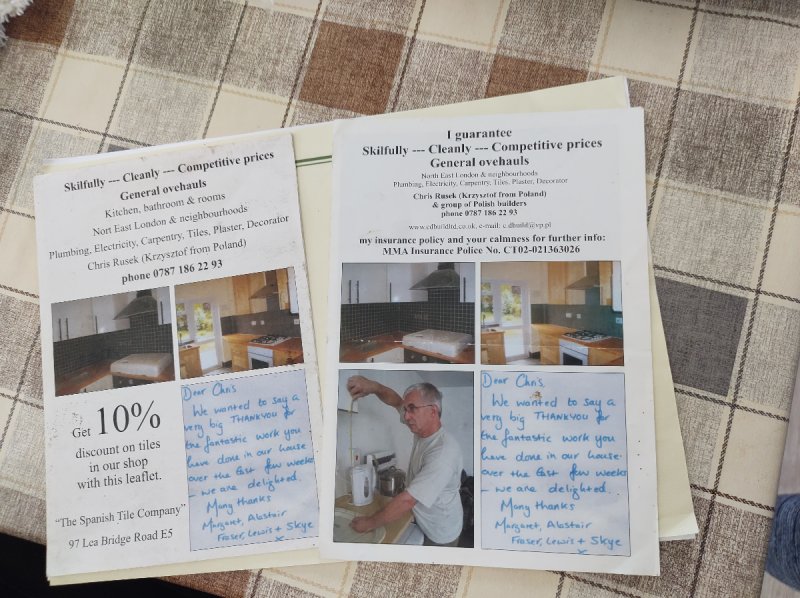 Skilfully --- Cleanly --- Competitive prices
General ovehauls
Kitchen, bathroom & rooms
Nort East London & neighbourhoods
Plumbing, Electricity, Carpentry, Tiles, Plaster, Decorator
Chris Rusek (Krzysztof from Poland)
phone 0787 186 22 93
Get 10%
discount on tiles
in our shop
with this leaflet.
"The Spanish Tile Company"
97 Lea Bridge Road E5
Dear Chris,
We wanted to say a
very big THANKYOU for
the fantastic work you
have done in our house
over the last few weeks
- we are delighted.
Many thanks
Margaret, Alastair
Fraser, Lewis + Skye
x
I guarantee
Skilfully --- Cleanly --- Competitive prices
General ovehauls
North East London & neighbourhoods
Plumbing, Electricity, Carpentry, Tiles, Plaster, Decorator
Chris Rusek (Krzysztof from Poland)
& group of Polish builders
phone 0787 186 22 93
my insurance policy and your calmness for further info:
MMA Insurance Police No. CT02-021363026
Dear Chris,
We wanted to say a
very big THANKYOU for
the fantastic work you
have done in our house
over the last few weeks
- we are delighted.
Many thanks
Margaret, Alastair
Fraser, Lewis + Skye
x